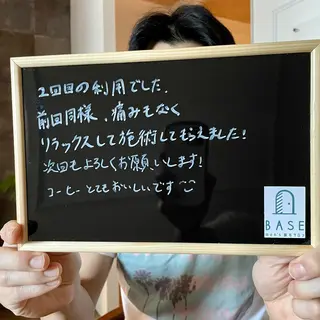 2回目の利用でした.
前回同様、痛みもなく
リラックスして施術してもらえました!
次回もよろしくお願いします!
コーヒーとてもおいしいです
BASE